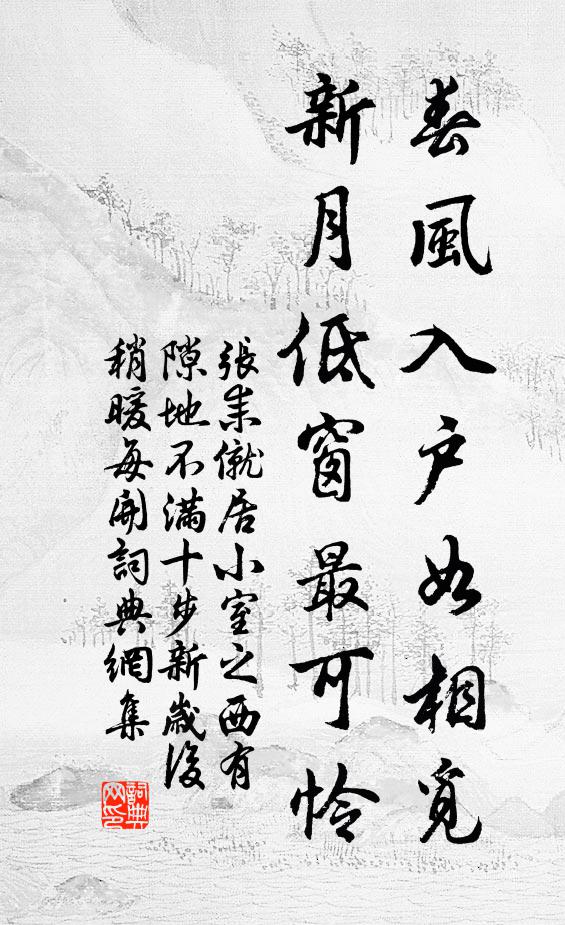 春風入户如相覓
新月低窗最可憐
張耒僦居小室之西有
隙地不滿十步新歲後
稍暖每開詞典網集
詞典
网印